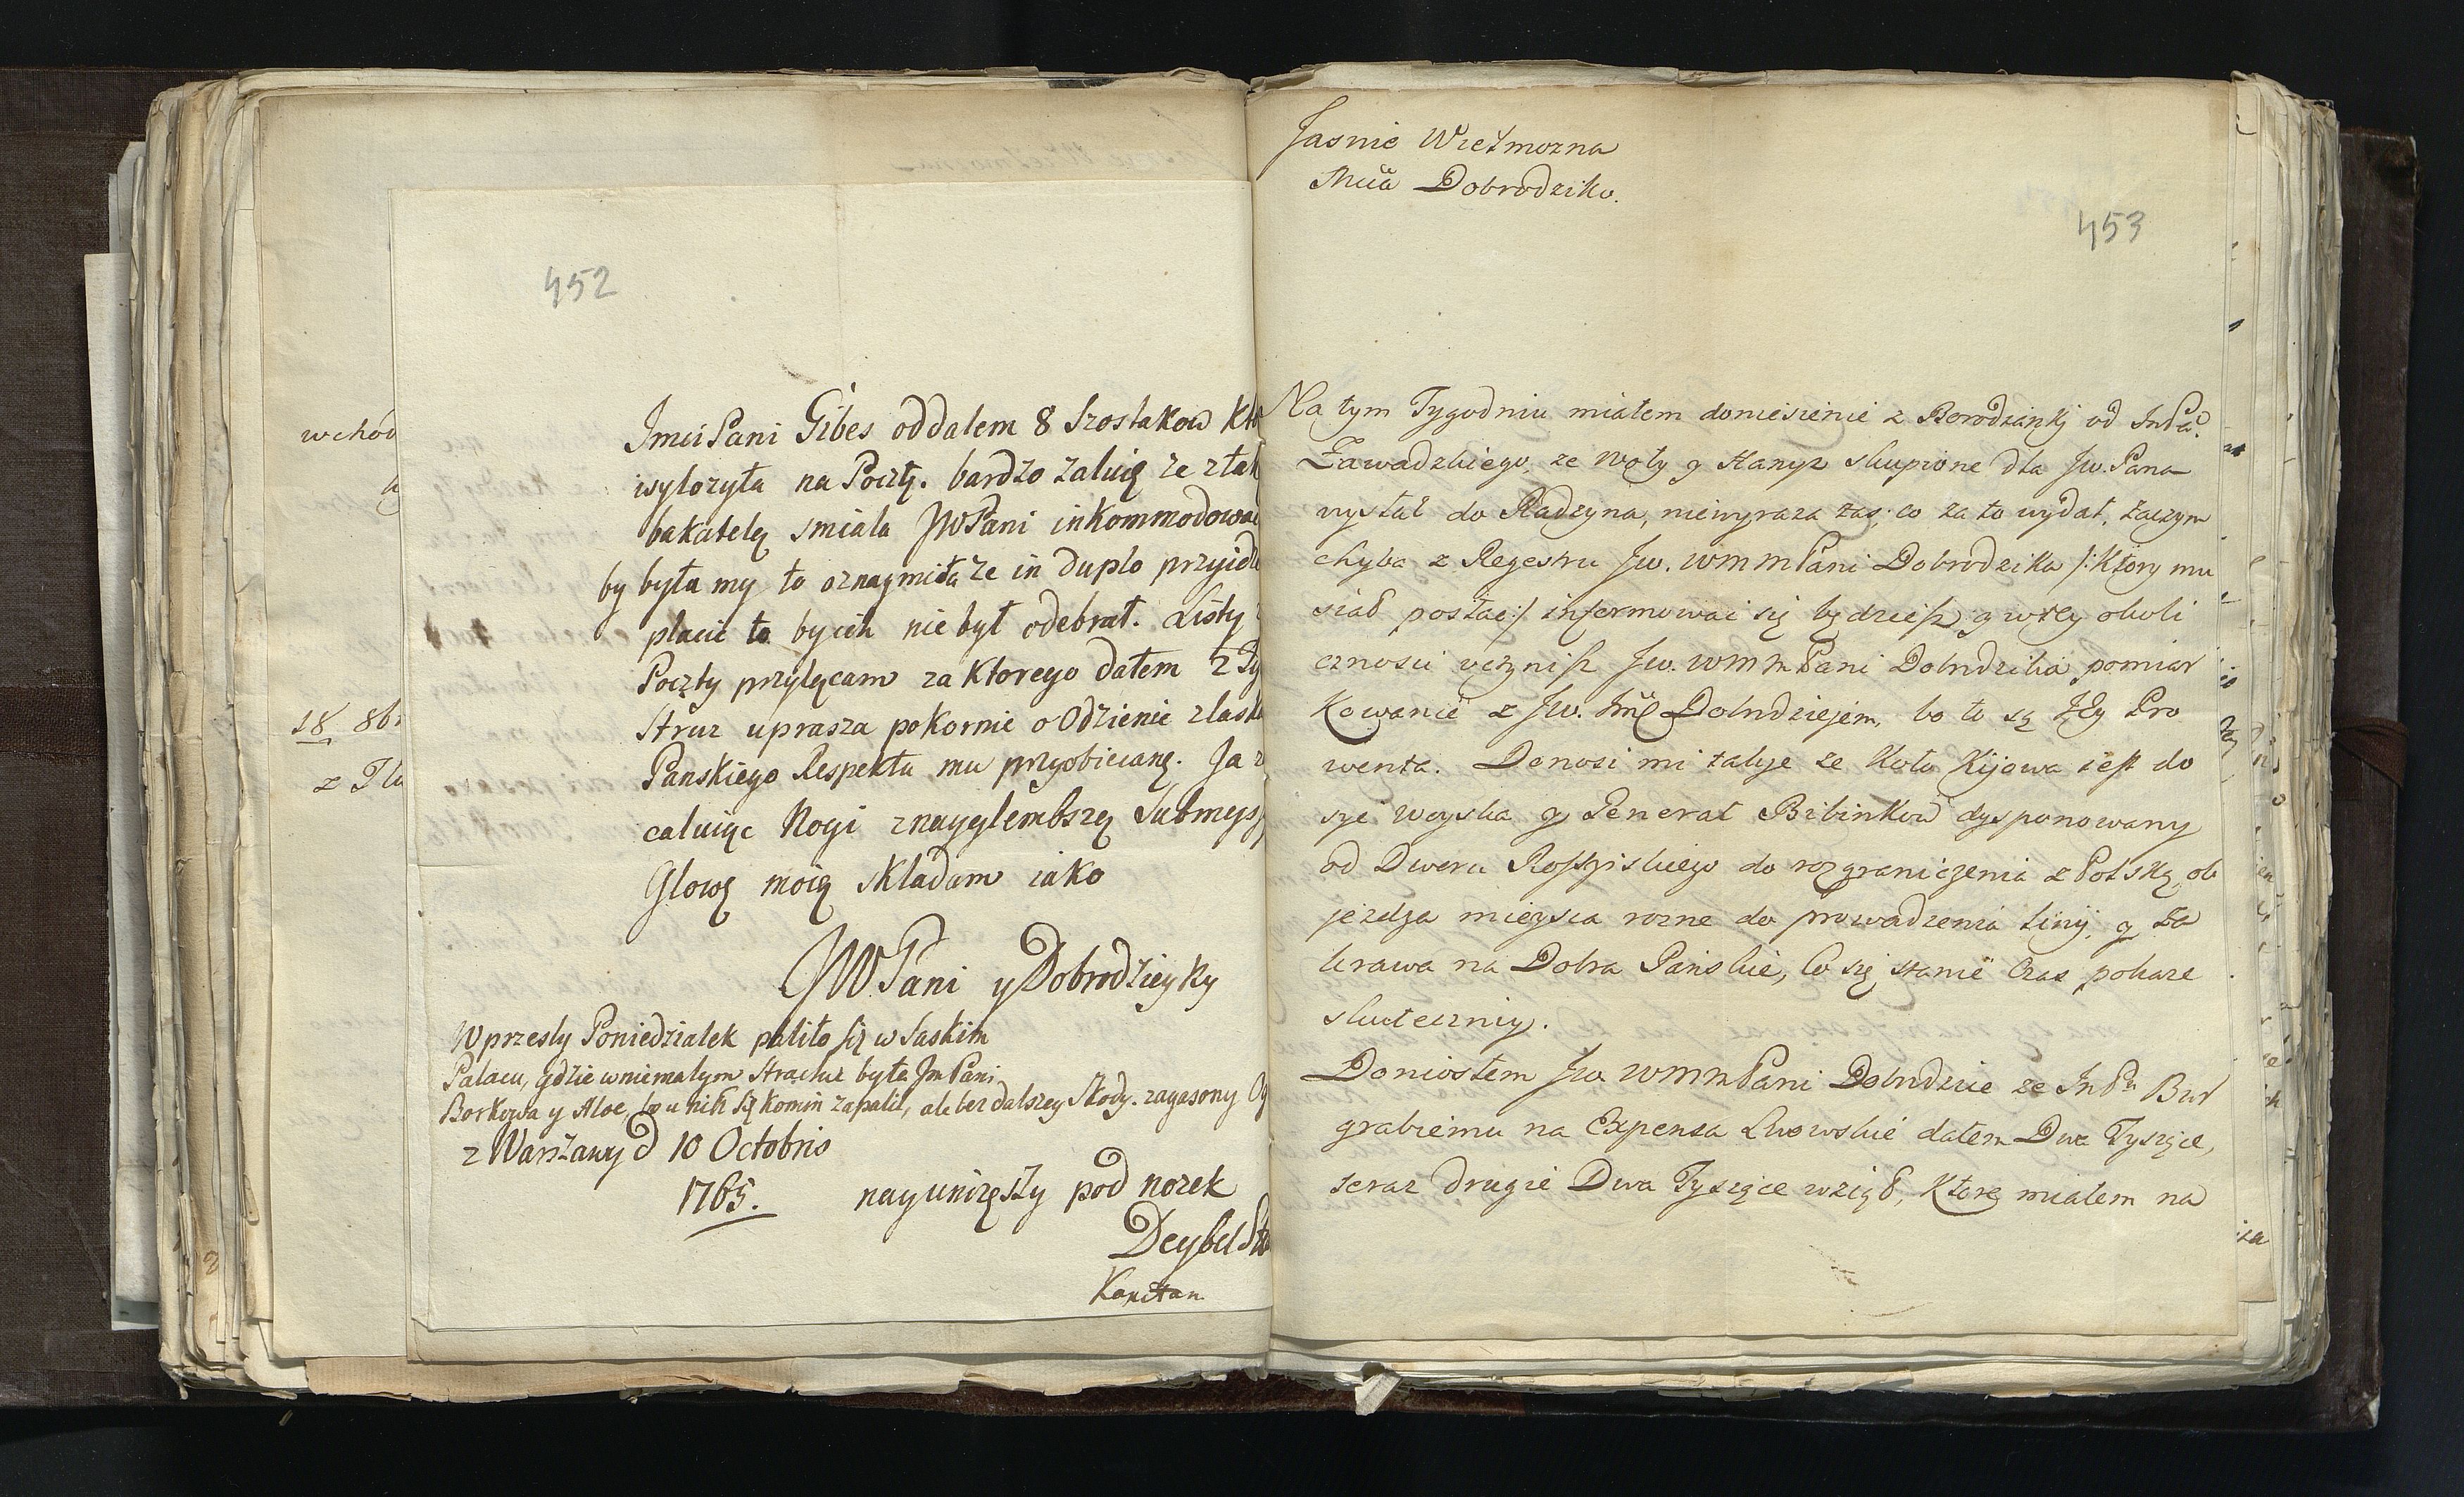 452
Imci Pani Gibes oddalem 8 Szostakow Kto
wylozyła na Pocztę. bardzo zaluię ze ztak
bakatelę smiala JWPani inkommodowac
by była my to oznaymiła ze in duplo przyidz
płacic to bych nie był odebrał. Listy
Poczty przyłęcam za Ktorego dałem 2 Ty
Struz uprasza pokornie o Odzienie zlask
Panskiego Respektu mu przyobiecanę. Ja
caluiąc Nogi znayglembszę Submeys
Glowę moię skladam iako
JWPani y Dobrodzieyky
W przesly Poniedzialek paliło się w Saskim
Palacu, gdzie w niemalym Strachu była Jm Pani
Borkowa y Aloe, bo u nich się komin zapalił, ale bez dalszey Skody. zagasony Og
z Warszawy d 10 Octobris
1765.
nayunizęszy pod nozek
Deybel
Kapitan
wchód
18 8br
z Tlu
453
Jasnie Wielmozna
Mcia Dobrodziko.
Na tym Tygodniu miałem doniesienie z Borodzianki od JmPa
Zawadzkiego, ze woły y Hanyz skupione dla Jw. Pana
wysłał do Radzyna, niewyraza zas, co za to wydał, zaczym
chyba z Regestru Jw. WMMPani Dobrodzika /: Ktory mu
siał posłac :/ informowac się będziesz y w tey okoli
cznosci uczynisz Jw. WMMPani Dobrodzika pomiar
Kowanie z Jw. Jmć Dobrodziejem, bo to są Jego Pro
wenta. Donosi mi takze ze koło Kijowa jest do
syc woyska y Generał Bibinkow dysponowany
od Dworu Rossyiskiego do rozgraniczenia z Polską ob
jezdza mieysca rozne do prowadzenia linij, y za
krawa na Dobra Panskie, Co się stanie Czas pokaze
skuteczniey.
Doniosłem Jw WMMPani Dobrodzice ze JmPu Bur
grabiemu na Expensa Lwowskie dałem Dwa Tysiące,
teraz drugie Dwa Tysiące wziął, Ktorę miałem na